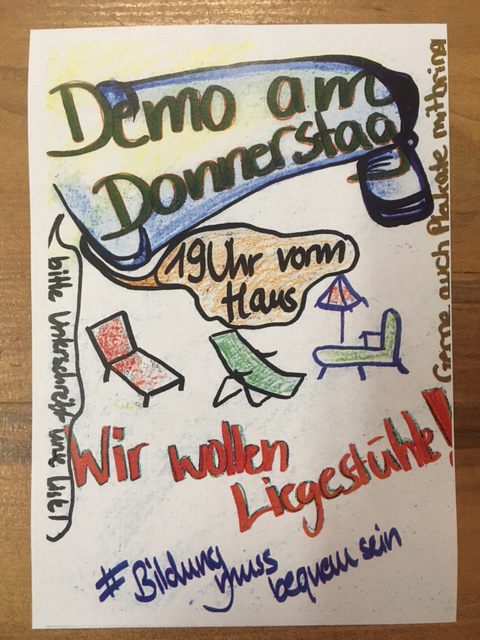 Demo am
Donnerstag
19 Uhr vorm
Haus
Gerne auch Plakate mitbring
bitte Unterschrift
Wir wollen
Liegestühle!
#Bildung
muss
bequem sein